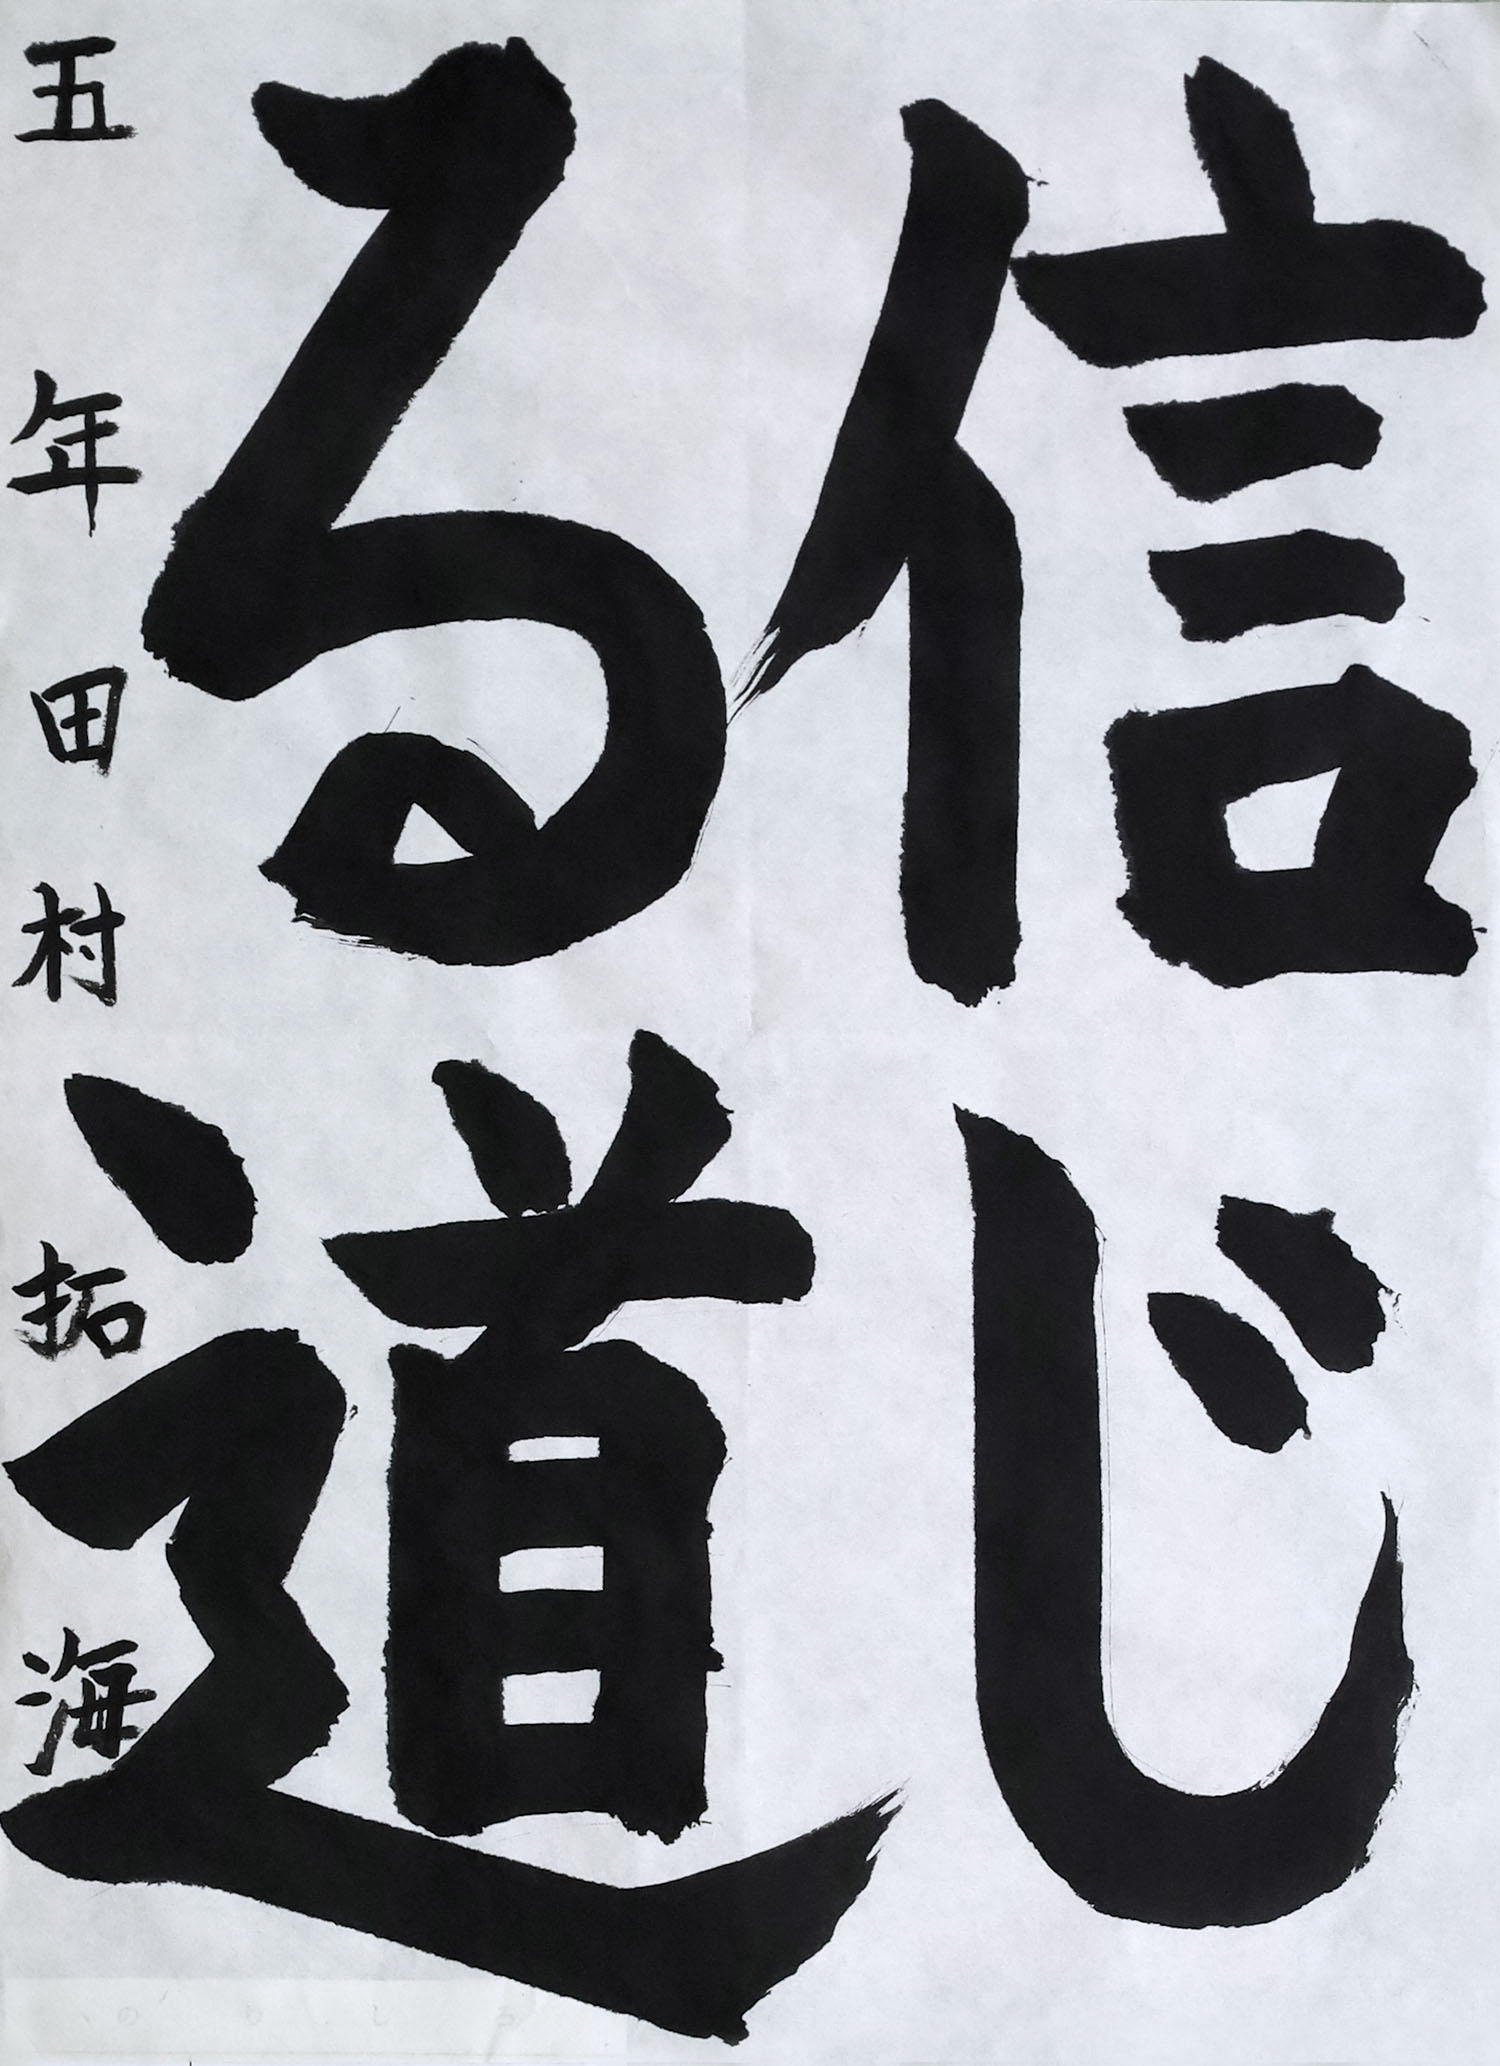 信じ
る道
五年田村拓海